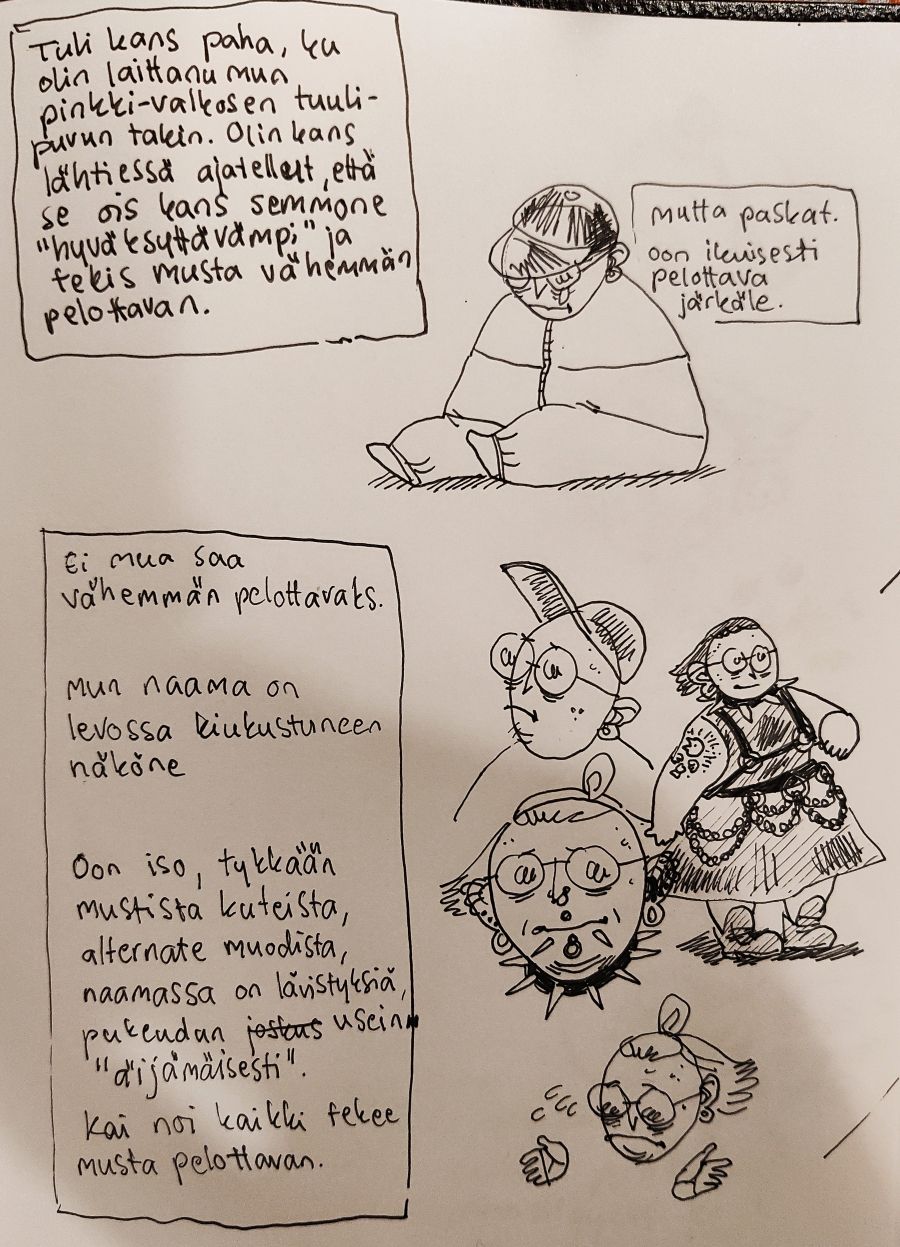 Tuli kans paha, ku
olin laittanu mun
pinkki-valkosen tuuli-
puvun takin. Olin kans
lähtiessä ajatellut, että
se ois kans semmone
"hyväksyttävämpi" ja
tekis musta vähemmän
pelottavan.
mutta paskat.
oon ikuisesti
pelottava
järkäle.
Ei mua saa
vähemmän pelottavaks.
Mun naama on
levossa kiukustuneen
näköne
Oon iso, tykkään
mustista kuteista,
alternate muodista,
naamassa on lävistyksiä,
pukeudun joskus usein
"äijämäisesti".
Kai noi kaikki tekee
musta pelottavan.